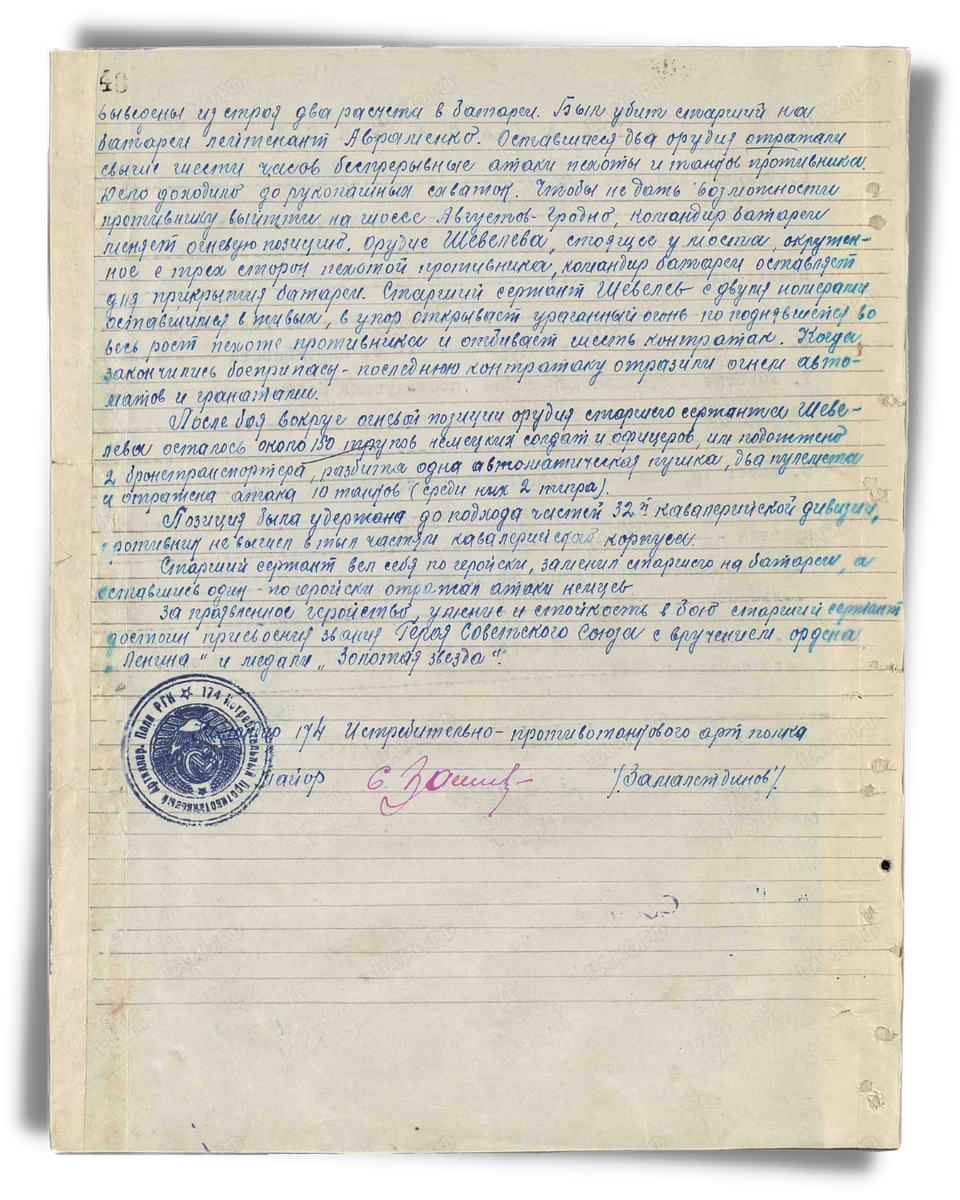 40
выведены из строя два расчета в батареи. Был убит старший на
батареи лейтенант Авраменко. Оставшиеся два орудия отражали
свыше шести часов беспрерывные атаки пехоты и танков противника.
Дело доходило до рукопашных схваток. Чтобы не дать возможности
противнику выйтти на шоссе Августов-Гродно, командир батареи
меняет огневую позицию. Орудие Шевелева, стоящее у моста, окружен-
ное с трех сторон пехотой противника, командир батареи оставляет
для прикрытия батареи. Старший сержант Шевелев с двумя номерами
оставшимися в живых, в упор открывает ураганный огонь по поднявшейся во
весь рост пехоте противника и отбивает шесть контратак. Когда
закончились боеприпасы - последнюю контратаку отразили огнем авто-
матов и гранатами.
После боя вокруг огневой позиции орудия старшего сержанта Шеве-
лева осталось около 150 трупов немецких солдат и офицеров, им подожжено
2 бронетранспортера, разбита одна автоматическая пушка, два пулемета
и отражена атака 10 танков (среди них 2 тигра).
Позиция была удержана до подхода частей 32й кавалерийской дивизии,
противник не вышел в тыл частям кавалерийской корпуса.
Старший сержант вел себя по геройски, заменил старшего на батареи, а
оставшись один - по геройски отражал атаки немцев.
За проявленное геройство, умение и стойкость в бою старший сержант
достоин присвоения звания Героя Советского Союза с вручением ордена
„Ленина“ и медали „Золотая звезда“.
174 Истребительно-противотанкового арт полка
майор /Замалетдинов/.
174 Истребительный Противотанковый Артиллер. Полк РГК